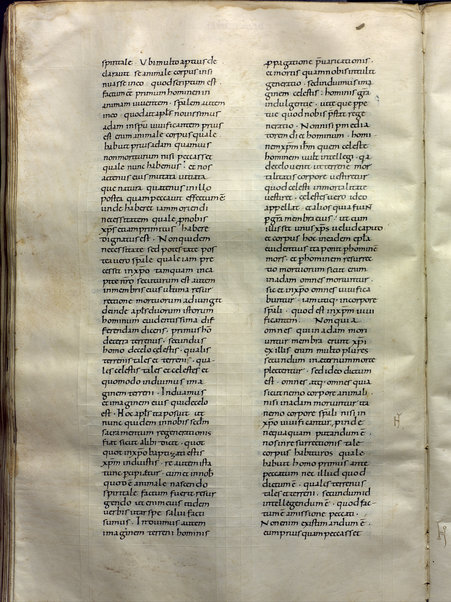 spiritale · Ubi multo aptius de
claravit se animale corpus insi
nuasse inco · quod scriptum est
factum ē primum hominem in
animam viventem · spalem autem
inco · quod ait apls novissimus
adam inspm vivificantem prius
est enim animale corpus quale
habuit prius adam quamvis
non moriturum nisi peccasset
quale nunc habemus · et nos
actenus eius mutata vitiata
que natura quatenus in illo
posteaquam peccavit effectum ē
unde haberet iam moriendi
necessitatem quale pnobis
xps etiam primitus habere
dignatus est · Non quidem
necessitate sed potestate pos
tea vero spale quale iam pre
cessit inxpo tamquam inca
pite nro secuturum est autem
inmembris eius ultima resur
rectione mortuorum adiungit
deinde apls duorum istorum
hominum evidentissimam dif
ferentiam dicens · primus hō
deterra terrenus · secundus
homo decelo celestis · qualis
terrenus tales et terreni · qua
lis celestis tales et celestes et
quomodo induimus ima
ginem terreni · Induamus
et imaginem eius quidecelo
est · Hoc apls ita posuit ut
nunc quidem innobis sedm
sacramentum regenerationis
fiat sicut alibi dicit · quot
quot inxpo baptizati estis
xpm induistis · re autem ista
tunc perficietur · cum et innob
quod ē animale nascendo
spiritale factum fuerit resur
gendo ut enim eius itidem
verbis utar spe salvi facti
sumus · Induimus autem
imaginem terreni hominis
ppagatione pvaricationis ·
et mortis quam nobis intulit
generatio · sed induimus ima
ginem celestis hominis gra
indulgentie · vite que ppe
tue quod nobis pstat rege
neratio · Non nisi p media
torem di et hominum · homi
nem xpm ihm quem celestē
hominem vult intellegi · qa
decelo venit ut terrene mor
talitatis corpore vestiretur
quod celesti inmortalitate
vestiret · celestes vero ideo
appellat et alios quia fiunt
p gram membra eius · ut cum
illis sit unus xps velud caput
et corpus hoc ineadem epla
evidentius ita ponit p hominē
mors · et p hominem resurrec
tio mortuorum sicut enim
inadam omnes moriuntur ·
sic et inxpo omnes vivifica
buntur · iam utiq; in corpore
spali · quod est inspm vivi
ficantem · Non quia
omnes qui in adam mori
untur membra erunt xpi
ex illis enim multo plures
secunda in eternum morte
plectentur · sed ideo dictum
est · omnes atq; omnes quia
sicut nemo corpore animali
nisi in adam moritur ita
nemo corpore spali nisi in
xpo vivificatur, pinde
nequaquam putandum ē ·
nos in resurrectione tale
corpus habituros quale
habuit homo primus ante
peccatum nec illud quod
dictum ē · qualis terrenus
tales et terreni · secundum id
intellegendum ē · quod fac
tum ē amissione peccati ·
Non enim existimandum ē ·
eum prius quam peccasset